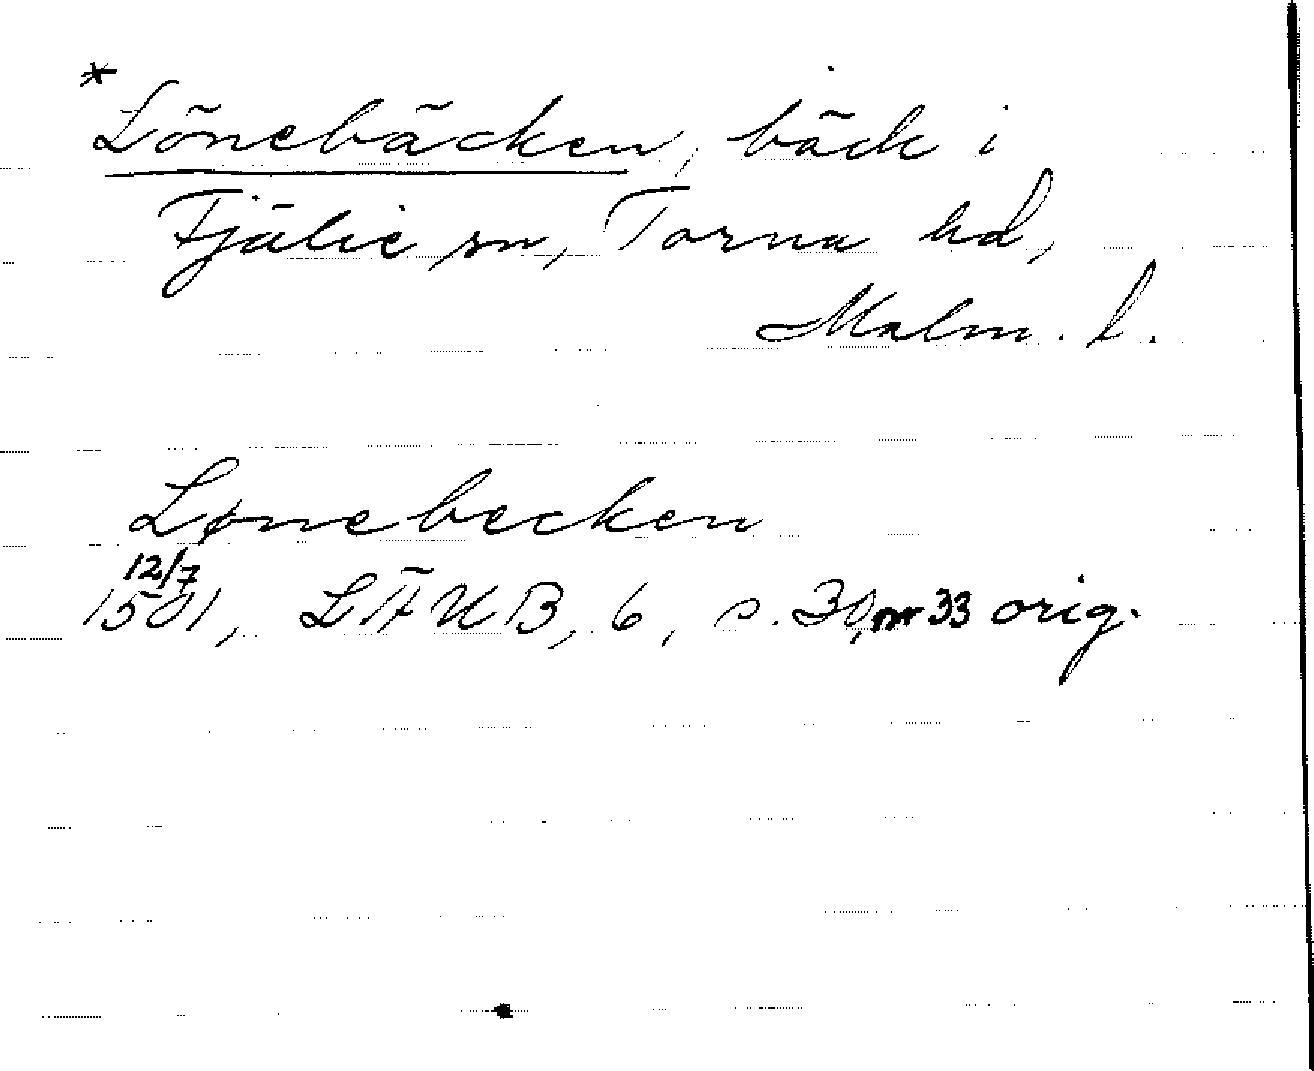 *
Lönebäcken, bäck i
Fjälie sn, Torna hd,
Malm. l.
Lønebecken
12/7
1501, LÄUB, 6, s. 30, nr 33 orig.